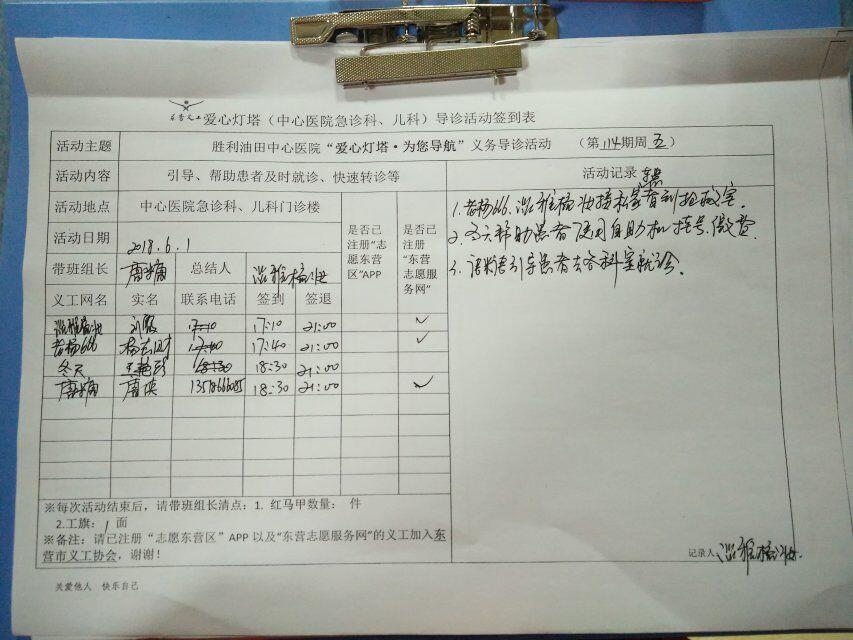 东营义工 爱心灯塔（中心医院急诊科、儿科）导诊活动签到表
活动主题 胜利油田中心医院“爱心灯塔·为您导航”义务导诊活动 （第114期周五）
活动内容 引导、帮助患者及时就诊、快速转诊等 活动记录
活动地点 中心医院急诊科、儿科门诊楼
活动日期 2018.6.1
是否已注册“志愿东营区”APP
是否已注册“东营志愿服务网”
带班组长 总结人
义工网名 实名 联系电话 签到 签退
17:10 17:10 21:00 ✓
老杨666 17:40 17:40 21:00 ✓
冬天 18:30 18:30 21:00
18:30 21:00 ✓
1.老杨666.
2.冬天帮助患者使用自助机挂号.缴费.
3. 引导患者去各科室就诊.
※每次活动结束后，请带班组长清点：1. 红马甲数量： 件
2.工旗：1 面
※备注：请已注册“志愿东营区”APP 以及“东营志愿服务网”的义工加入东
营市义工协会，谢谢！
记录人：
关爱他人 快乐自己